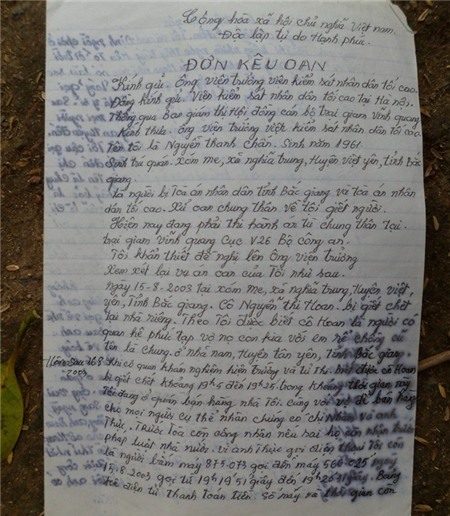 Cộng hòa xã hội chủ nghĩa Việt nam.
Độc lập tự do Hạnh phúc.
ĐƠN KÊU OAN
Kính gửi: Ông viên trưởng viên kiểm sát nhân dân tối cao.
Đồng kính gửi: Viên kiểm sát nhân dân tối cao tại Hà nội.
Thông qua Ban giám thị Hội đồng cán bộ trại giam Vĩnh quang
Kính thưa: ông viện trưởng viện kiểm sát nhân dân tối cao.
Tên tôi là Nguyễn thanh Chấn. Sinh năm 1961
Sinh trú quán. Xóm me, xã nghĩa trung, Huyện Việt yên, tỉnh Bắc
giang.
là người bị Toà án nhân dân tỉnh Bắc giang và toà án nhân
dân tối cao. Xử oan chung thân về tội giết người.
Hiện nay đang phải thi hành án tù chung thân tại.
trại giam vĩnh quang Cục V26 Bộ công an.
Tôi khẩn thiết đề nghị lên Ông viện trưởng
Xem xét lại vụ án oan của Tôi như sau.
ngày 15-8-2003 tại xóm me, xã nghĩa trung, Huyện việt,
yên, Tỉnh Bắc giang. Cô Nguyễn thị Hoan. bị giết chết
tại nhà riêng. Theo Tôi được biết cô Hoan là người có
quan hệ phức tạp vợ nọ con kia với em rể chồng cũ
tên là chung ở nhã nam, Huyện tân yên, tỉnh Bắc giang.
Hôm sau 16.8 2003
Khi cơ quan khám nghiệm hiện trường và tử thi. biết được cô Hoan
bị giết chết khoảng 19h5 đến 19h25 trong khoảng thời gian này
Tôi đang ở quán bán hàng nhà Tôi. cùng với vợ để bán hàng
cho mọi người cụ thể nhân chứng có chị nhân và anh
Thực. Trước Tòa còn công nhân nếu sai họ nhận trước
pháp luật nhà nước. vì anh Thực gọi điện thoại Tôi còn
là người bấm máy 877-073 gọi đến máy 566-025 ngày
15.8-2003 gọi từ 19h19'51 giây đến 19h20 giây. Bảng
kê điện tử thanh toán tiền. Số máy và thời gian còn